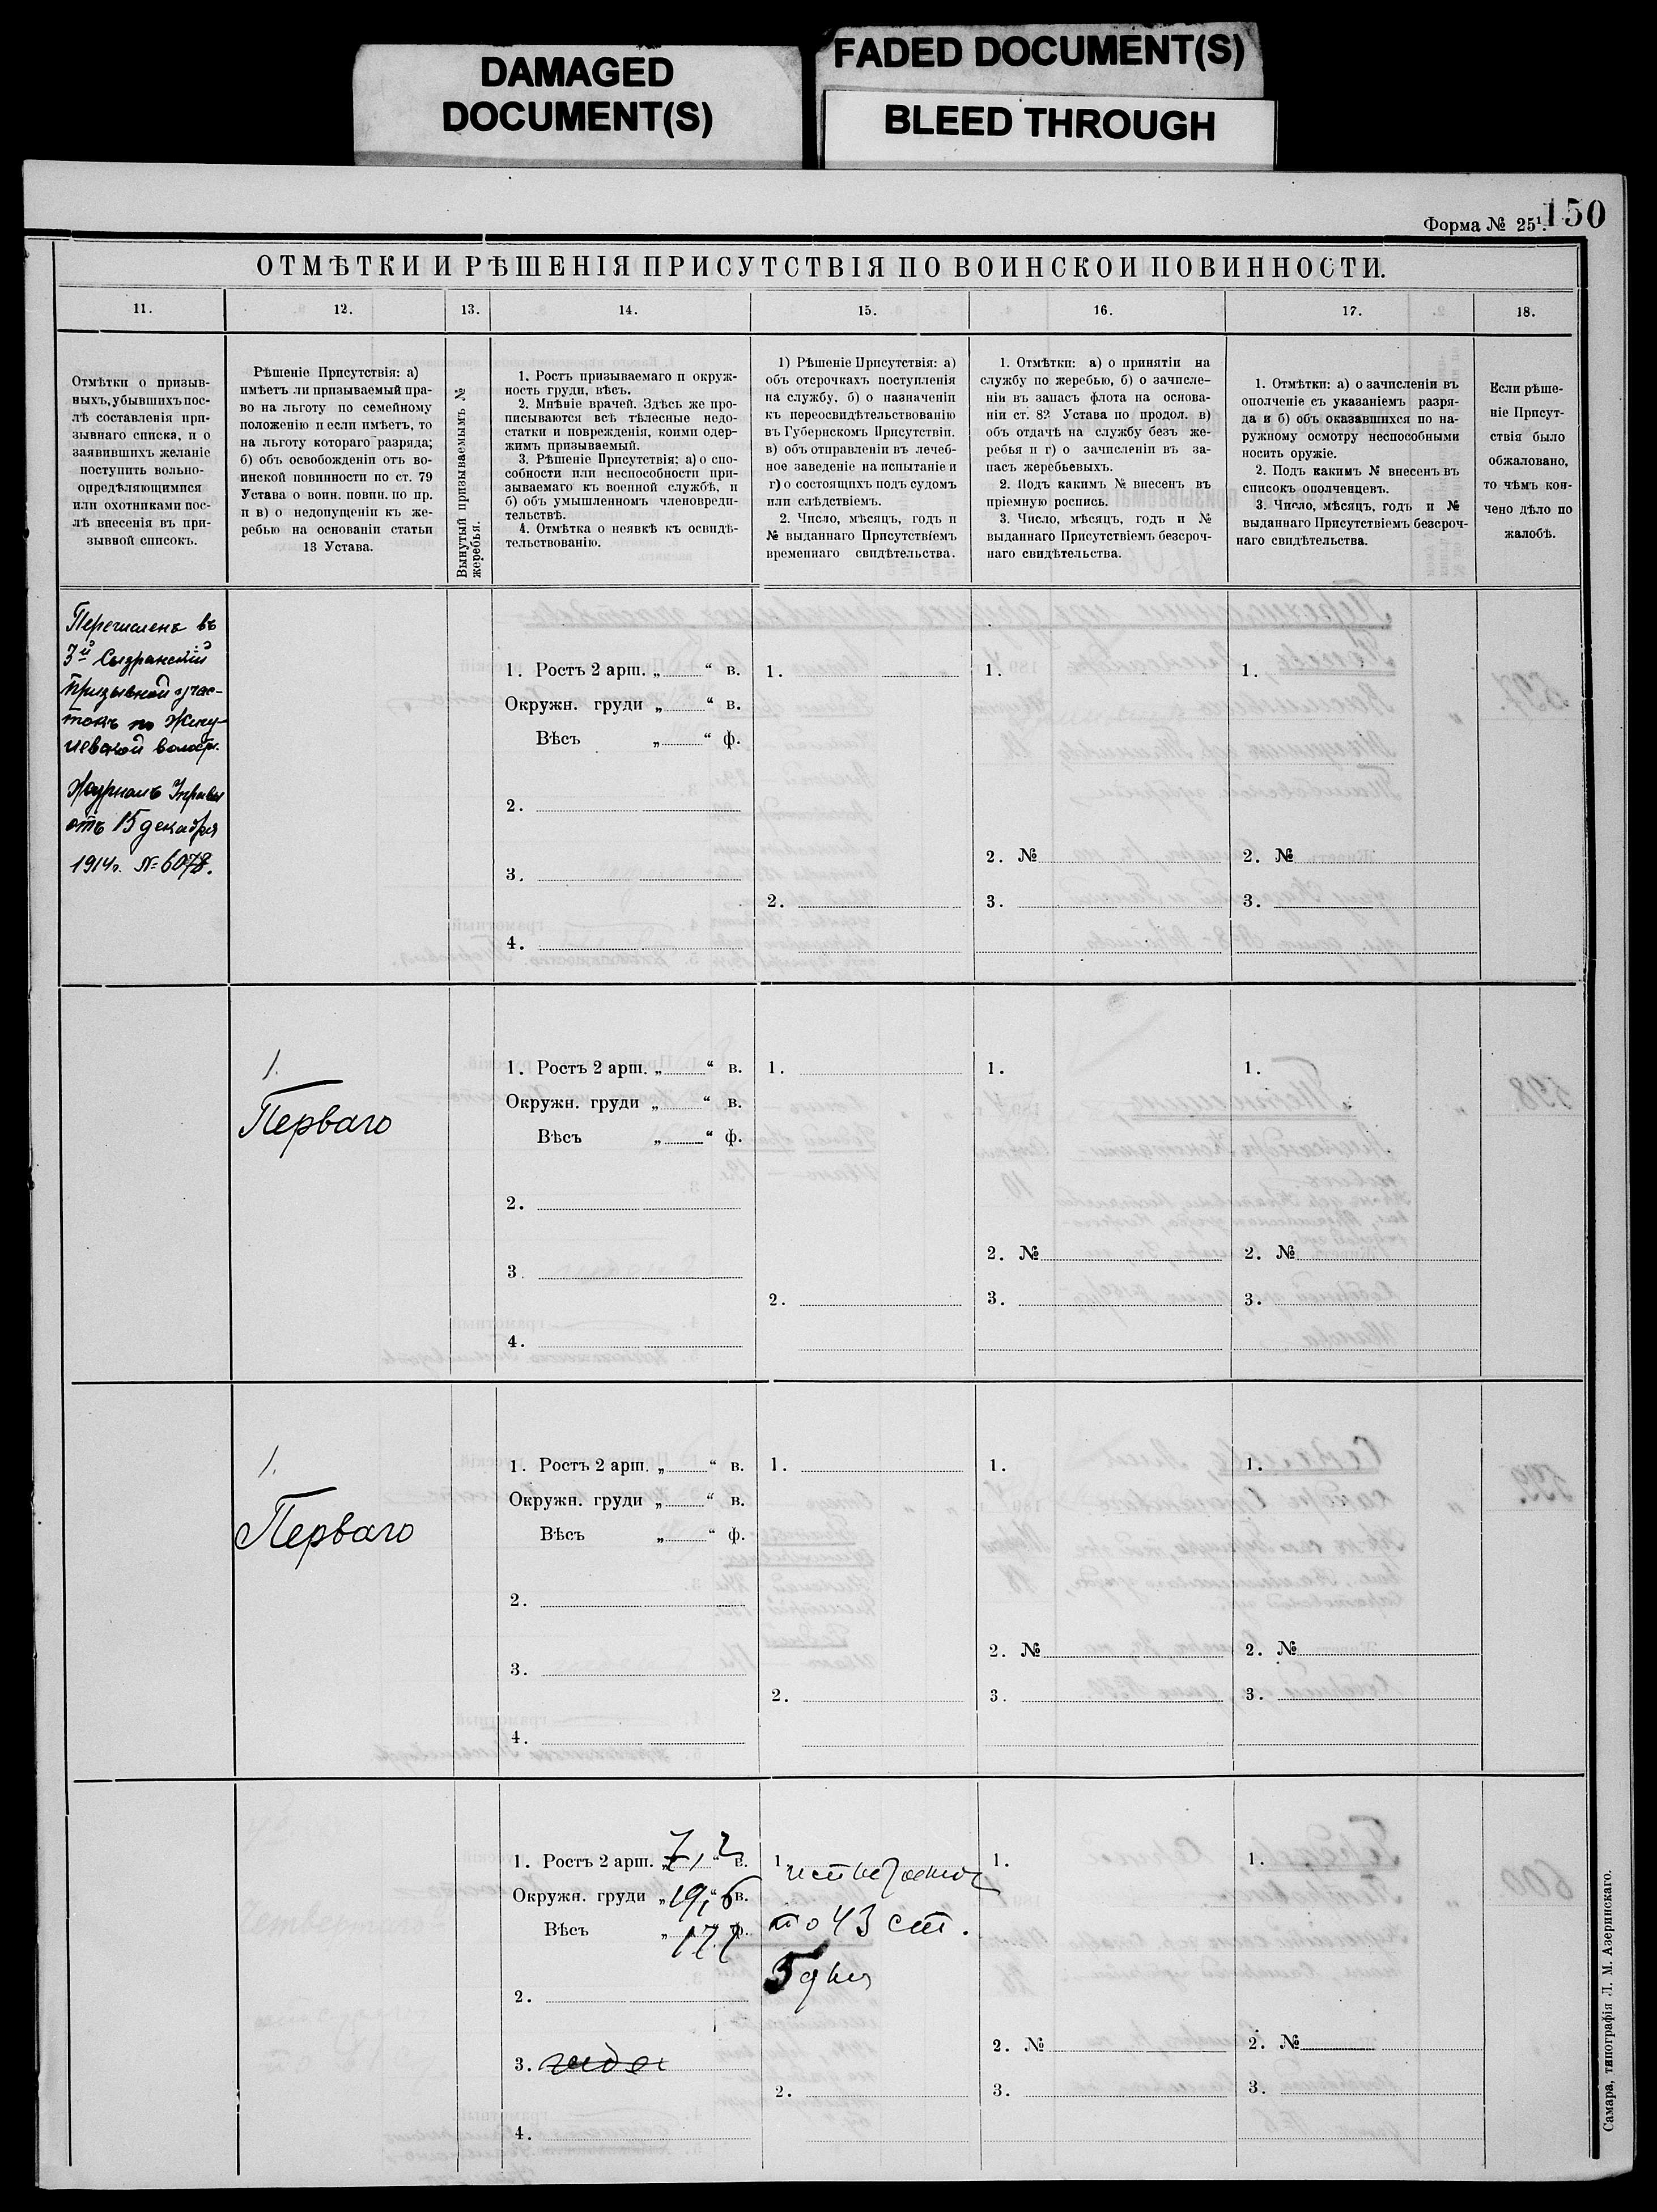 DAMAGED
DOCUMENT(S)
FADED DOCUMENT(S)
BLEED THROUGH
Форма № 25¹.
150
ОТМѢТКИ И РѢШЕНІЯ ПРИСУТСТВІЯ ПО ВОИНСКОЙ ПОВИННОСТИ.
11.
12.
13.
14.
15.
16.
17.
18.
Отмѣтки о призыв-
ныхъ, убывшихъ пос-
лѣ составленія при-
зывнаго списка, и о
заявившихъ желаніе
поступить вольно-
опредѣляющимися
или охотниками пос-
лѣ внесенія въ при-
зывной списокъ.
Рѣшеніе Присутствія: а)
имѣетъ ли призываемый пра-
во на льготу по семейному
положенію и если имѣетъ, то
на льготу котораго разряда;
б) объ освобожденіи отъ во-
инской повинности по ст. 79
Устава о воин. повин. по пр.
и в) о недопущеніи къ же-
ребью на основаніи статьи
13 Устава.
Вынутый призываемымъ №
жеребья.
1. Ростъ призываемаго и окруж-
ность груди, вѣсъ.
2. Мнѣніе врачей. Здѣсь же про-
писываются всѣ тѣлесные недо-
статки и поврежденія, коими одер-
жимъ призываемый.
3. Рѣшеніе Присутствія; а) о спо-
собности или неспособности при-
зываемаго къ военной службѣ, и
б) объ умышленномъ членовреди-
тельствѣ.
4. Отмѣтка о неявкѣ къ освидѣ-
тельствованію.
1) Рѣшеніе Присутствія: а)
объ отсрочкахъ поступленія
на службу, б) о назначеніи
къ переосвидѣтельствованію
въ Губернскомъ Присутствіи.
в) объ отправленіи въ лечеб-
ное заведеніе на испытаніе и
г) о состоящихъ подъ судомъ
или слѣдствіемъ.
2. Число, мѣсяцъ, годъ и
№ выданнаго Присутствіемъ
временнаго свидѣтельства.
1. Отмѣтки: а) о принятіи на
службу по жеребью, б) о зачисле-
ніи въ запасъ флота на основа-
ніи ст. 82 Устава по продол. в)
объ отдачѣ на службу безъ же-
ребья и г) о зачисленіи въ за-
пасъ жеребьевыхъ.
2. Подъ какимъ № внесенъ въ
пріемную роспись.
3. Число, мѣсяцъ, годъ и №
выданнаго Присутствіемъ безсроч-
наго свидѣтельства.
1. Отмѣтки: а) о зачисленіи въ
ополченіе съ указаніемъ разря-
да и б) объ оказавшихся по на-
ружному осмотру неспособными
носить оружіе.
2. Подъ какимъ № внесенъ въ
списокъ ополченцевъ.
3. Число, мѣсяцъ, годъ и №
выданнаго Присутствіемъ безсроч-
наго свидѣтельства.
Если рѣше-
ніе Присут-
ствія было
обжаловано,
то чѣмъ кон-
чено дѣло по
жалобѣ.
Перечисленъ въ
3й Сызранскій
призывной учас-
токъ по Жигу-
левской волости.
Журналъ Управы
отъ 15 декабря
1914г. № 6078.
1. Ростъ 2 арш. „ “ в.
Окружн. груди „ “ в.
Вѣсъ „ “ ф.
2.
3.
4.
1.
2.
1.
2. №
3.
1.
2. №
3.
1.
Перваго
1. Ростъ 2 арш. „ “ в.
Окружн. груди „ “ в.
Вѣсъ „ “ ф.
2.
3.
4.
1.
2.
1.
2. №
3.
1.
2. №
3.
1.
Перваго
1. Ростъ 2 арш. „ “ в.
Окружн. груди „ “ в.
Вѣсъ „ “ ф.
2.
3.
4.
1.
2.
1.
2. №
3.
1.
2. №
3.
1. Ростъ 2 арш. „ 7,2 “ в.
Окружн. груди „ 19,6 “ в.
Вѣсъ „ 177 ф.
2.
3.
4.
1.
по 43 ст.
5 дня
2.
1.
2. №
3.
1.
2. №
3.
Самара, типографія Л. М. Азеринскаго.